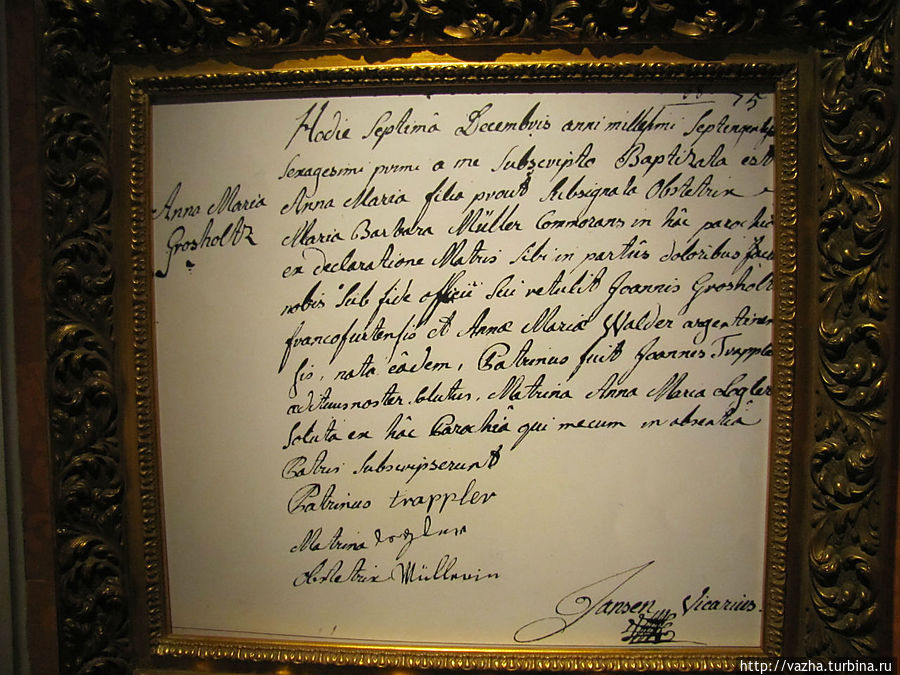 75
Hodie Septimâ Decembris anni millesimi
Sexagesimi primi a me Subscripto Baptizata est
Anna Maria
Grosholtz
Anna Maria filia prout Subsignata Obstetrix
Maria Barbara Müller Commorans in hâc parochia
ex declaratione Matris Sibi in partûs doloribus
nobis Sub fide officii Sui retulit Joannis Grosholt
francofurtensis et Annæ Mariæ Walder argentinen
sis, nata eâdem, Patrinus fuit Joannes Trapple
noster Matrina Anna Maria
Soluta ex hâc Parochiâ qui mecum in absentiâ
Patris Subscripserunt
Patrinus trappler
Matrina
Obstetrix Müllerin
Jansen Vicarius.
http://vazha.turbina.ru